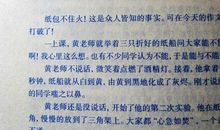 纸包不住火！这是众人皆知的事实，可在今天的作
打破了！
一上课，黄老师就举着三只折好的纸船问大家能不
啊！我心里这么想。也有不少同学认为不能，于是与不能
黄老师不说话，微笑着点燃了酒精灯。接着，他拿着
秒钟，纸船就从白到黄，由黄到黑地化成了灰烬。刚才
的同学嗤之以鼻。
黄老师还是没说话，开始了他的第二次实验。他在纸
角，慢慢的放到了三角架上。大家都“心急如焚”，一个